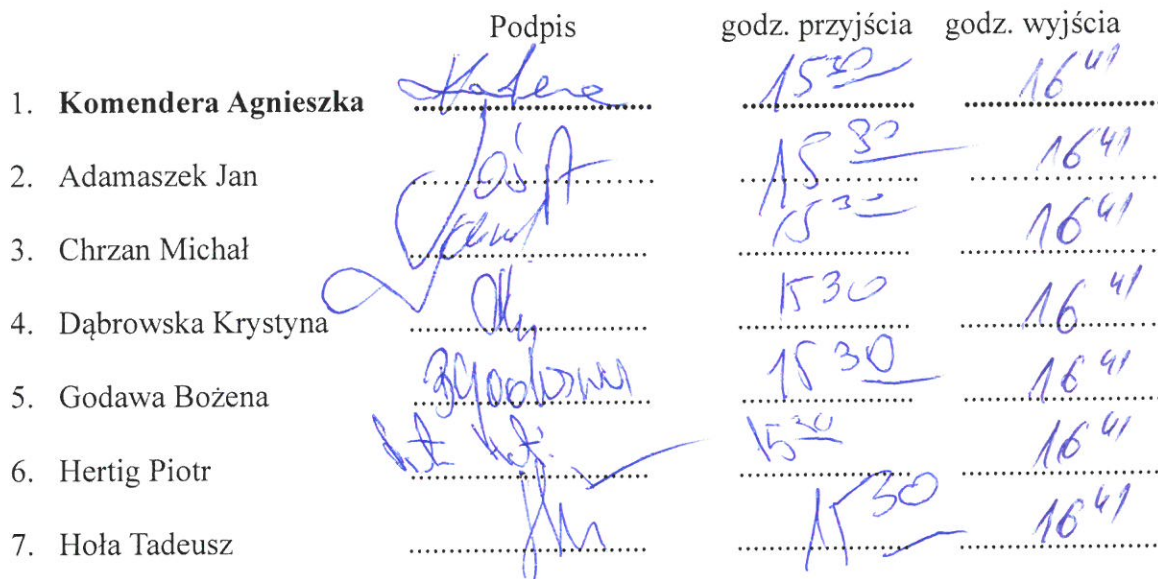 Podpis godz. przyjścia godz. wyjścia
1. Komendera Agnieszka 15 30 16 41
2. Adamaszek Jan 15 30 16 41
3. Chrzan Michał 15 30 16 41
4. Dąbrowska Krystyna 15 30 16 41
5. Godawa Bożena 15 30 16 41
6. Hertig Piotr 15 30 16 41
7. Hoła Tadeusz 15 30 16 41